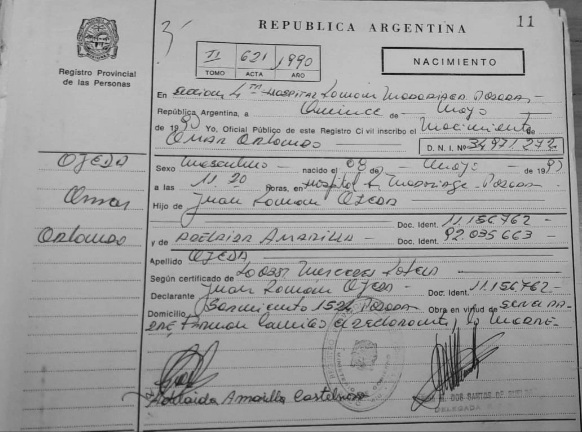 REPUBLICA ARGENTINA
11
3
II 621 1990
TOMO ACTA AÑO
NACIMIENTO
Registro Provincial
de las Personas
En Seccion 4ta Hospital Ramon Madariaga Posadas
República Argentina, a Quince de Mayo
de 1990 Yo, Oficial Público de este Registro Civil inscribo el Nacimiento de
Omar Orlando D. N. I. Nº 34.971.272
OJEDA
Omar
Orlando
Sexo Masculino nacido el 08 de Mayo de 19
a las 11.20 Horas, en Hospital R. Madariaga Posadas
Hijo de Juan Ramon OJEDA
Doc. Ident. 11.156.762
y de ADELAIDA AMARILLA Doc. Ident. 92.035.663
Apellido OJEDA
Según certificado de Mercedes
Declarante Juan Ramon OJEDA Doc. Ident. 11.156.762
Domicilio Sarmiento 152 Posadas Obra en virtud de
Firman el declarante, la Madre
Adelaida Amarilla Castelnovo
DOS SANTOS DE
DELEGADA